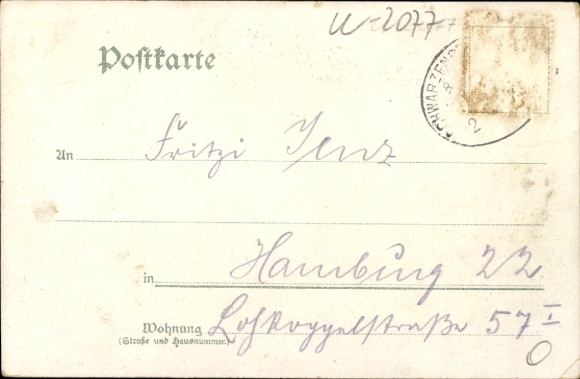 W-2077
Postkarte
SCHWARZEN
2
An Fritzi Jenz
in Hamburg 22
Wohnung Lohkoppelstraße 57 I
(Straße und Hausnummer)